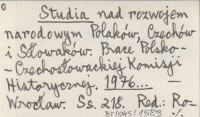 Studia nad rozwojem
narodowym Polaków, Czechów
i Słowaków. Prace Polsko-
-Czechosłowackiej Komisji
Historycznej. 1976...
Wrocław. Ss. 218. Red.: Ro-
BT/1045/1583 ./.